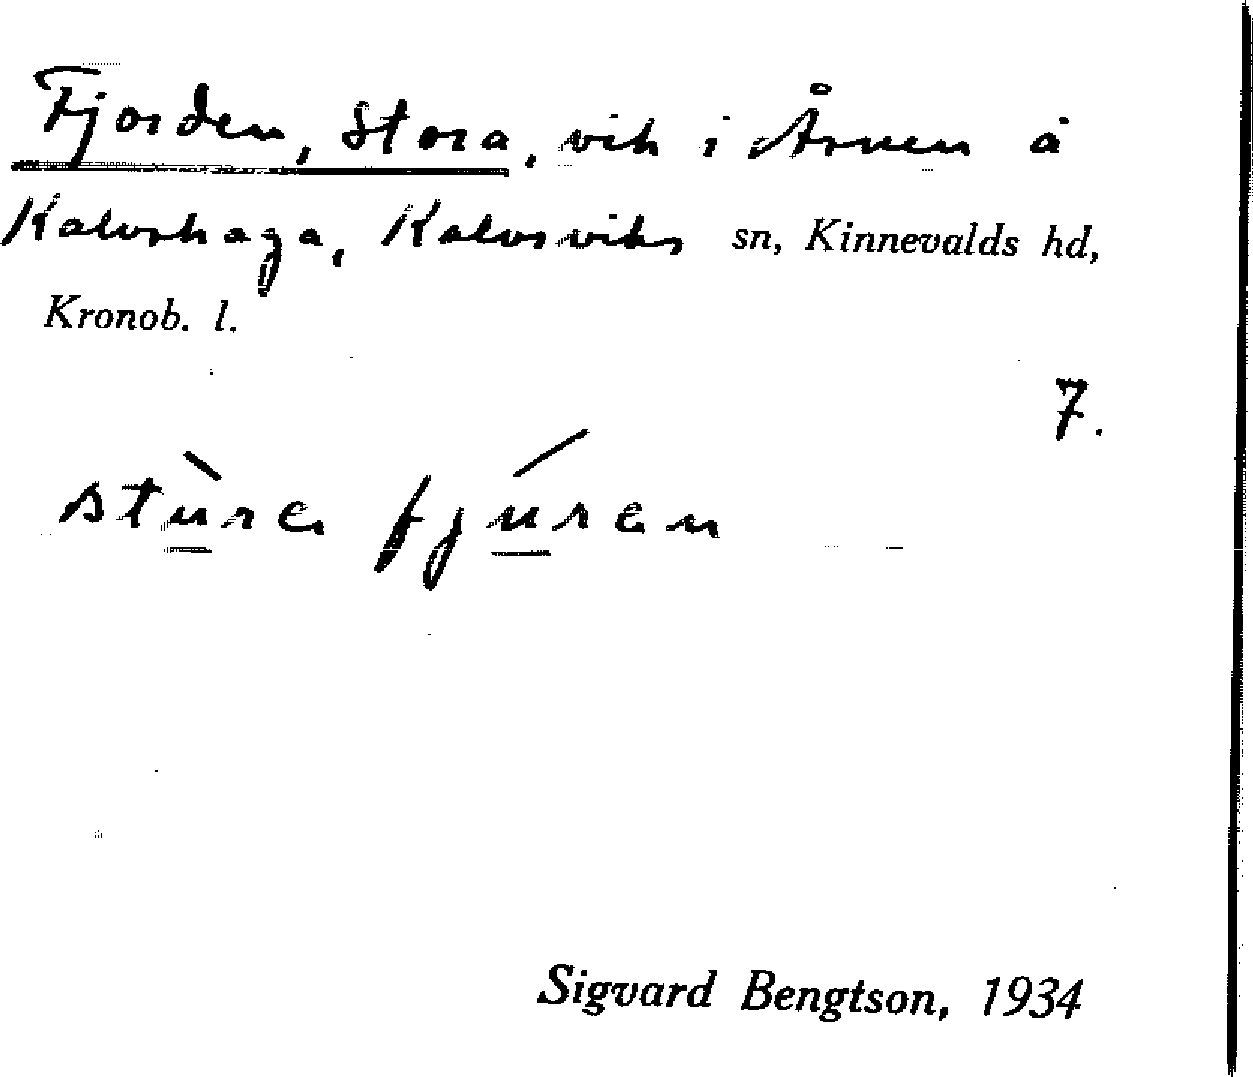 Fjorden, Stora, vik i Årnen å
Kalvshaga, Kalvsviks sn, Kinnevalds hd,
Kronob. l.
7.
stùra fjúren
Sigvard Bengtson, 1934